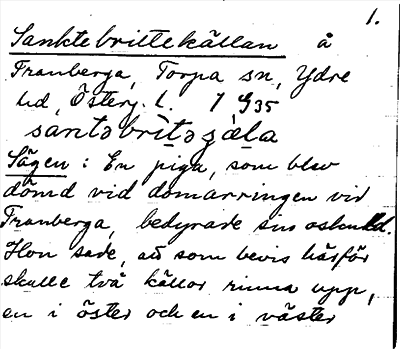 1.
Sanktebrittekällan å
Franberga, Torpa sn, Ydre
hd, Österg. l. 7 G35
santəbrìtəçàla
Sägen : En piga, som blev
dömd vid domarringen vid
Franberga, bedyrade sin oskuld.
Hon sade, att som bevis härför
skulle två källor rinna upp,
en i öster och en i väster